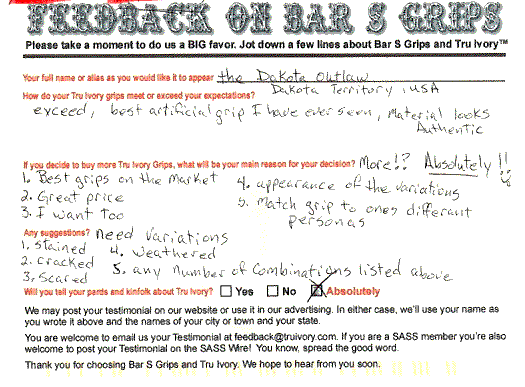 FEEDBACK ON BAR S GRIPS
Please take a moment to do us a BIG favor. Jot down a few lines about Bar S Grips and Tru Ivory™
Your full name or alias as you would like it to appear the Dakota Outlaw
Dakota Territory, USA
How do your Tru Ivory grips meet or exceed your expectations?
exceed, best artificial grip I have ever seen, Material looks
Authentic
If you decide to buy more Tru Ivory Grips, what will be your main reason for your decision? More!? Absolutely!!
1. Best grips on the market
2. Great price
3. I want too
4. appearance of the variations
5. Match grip to ones different
personas
Any suggestions? Need Variations
1. Stained
2. Cracked
3. Scared
4. Weathered
5. any Number of Combinations listed above
Will you tell your pards and kinfolk about Tru Ivory? Yes No Absolutely
We may post your testimonial on our website or use it in our advertising. In either case, we'll use your name as
you wrote it above and the names of your city or town and your state.
You are welcome to email us your Testimonial at feedback@truivory.com. If you are a SASS member you're also
welcome to post your Testimonial on the SASS Wire! You know, spread the good word.
Thank you for choosing Bar S Grips and Tru Ivory. We hope to hear from you soon.